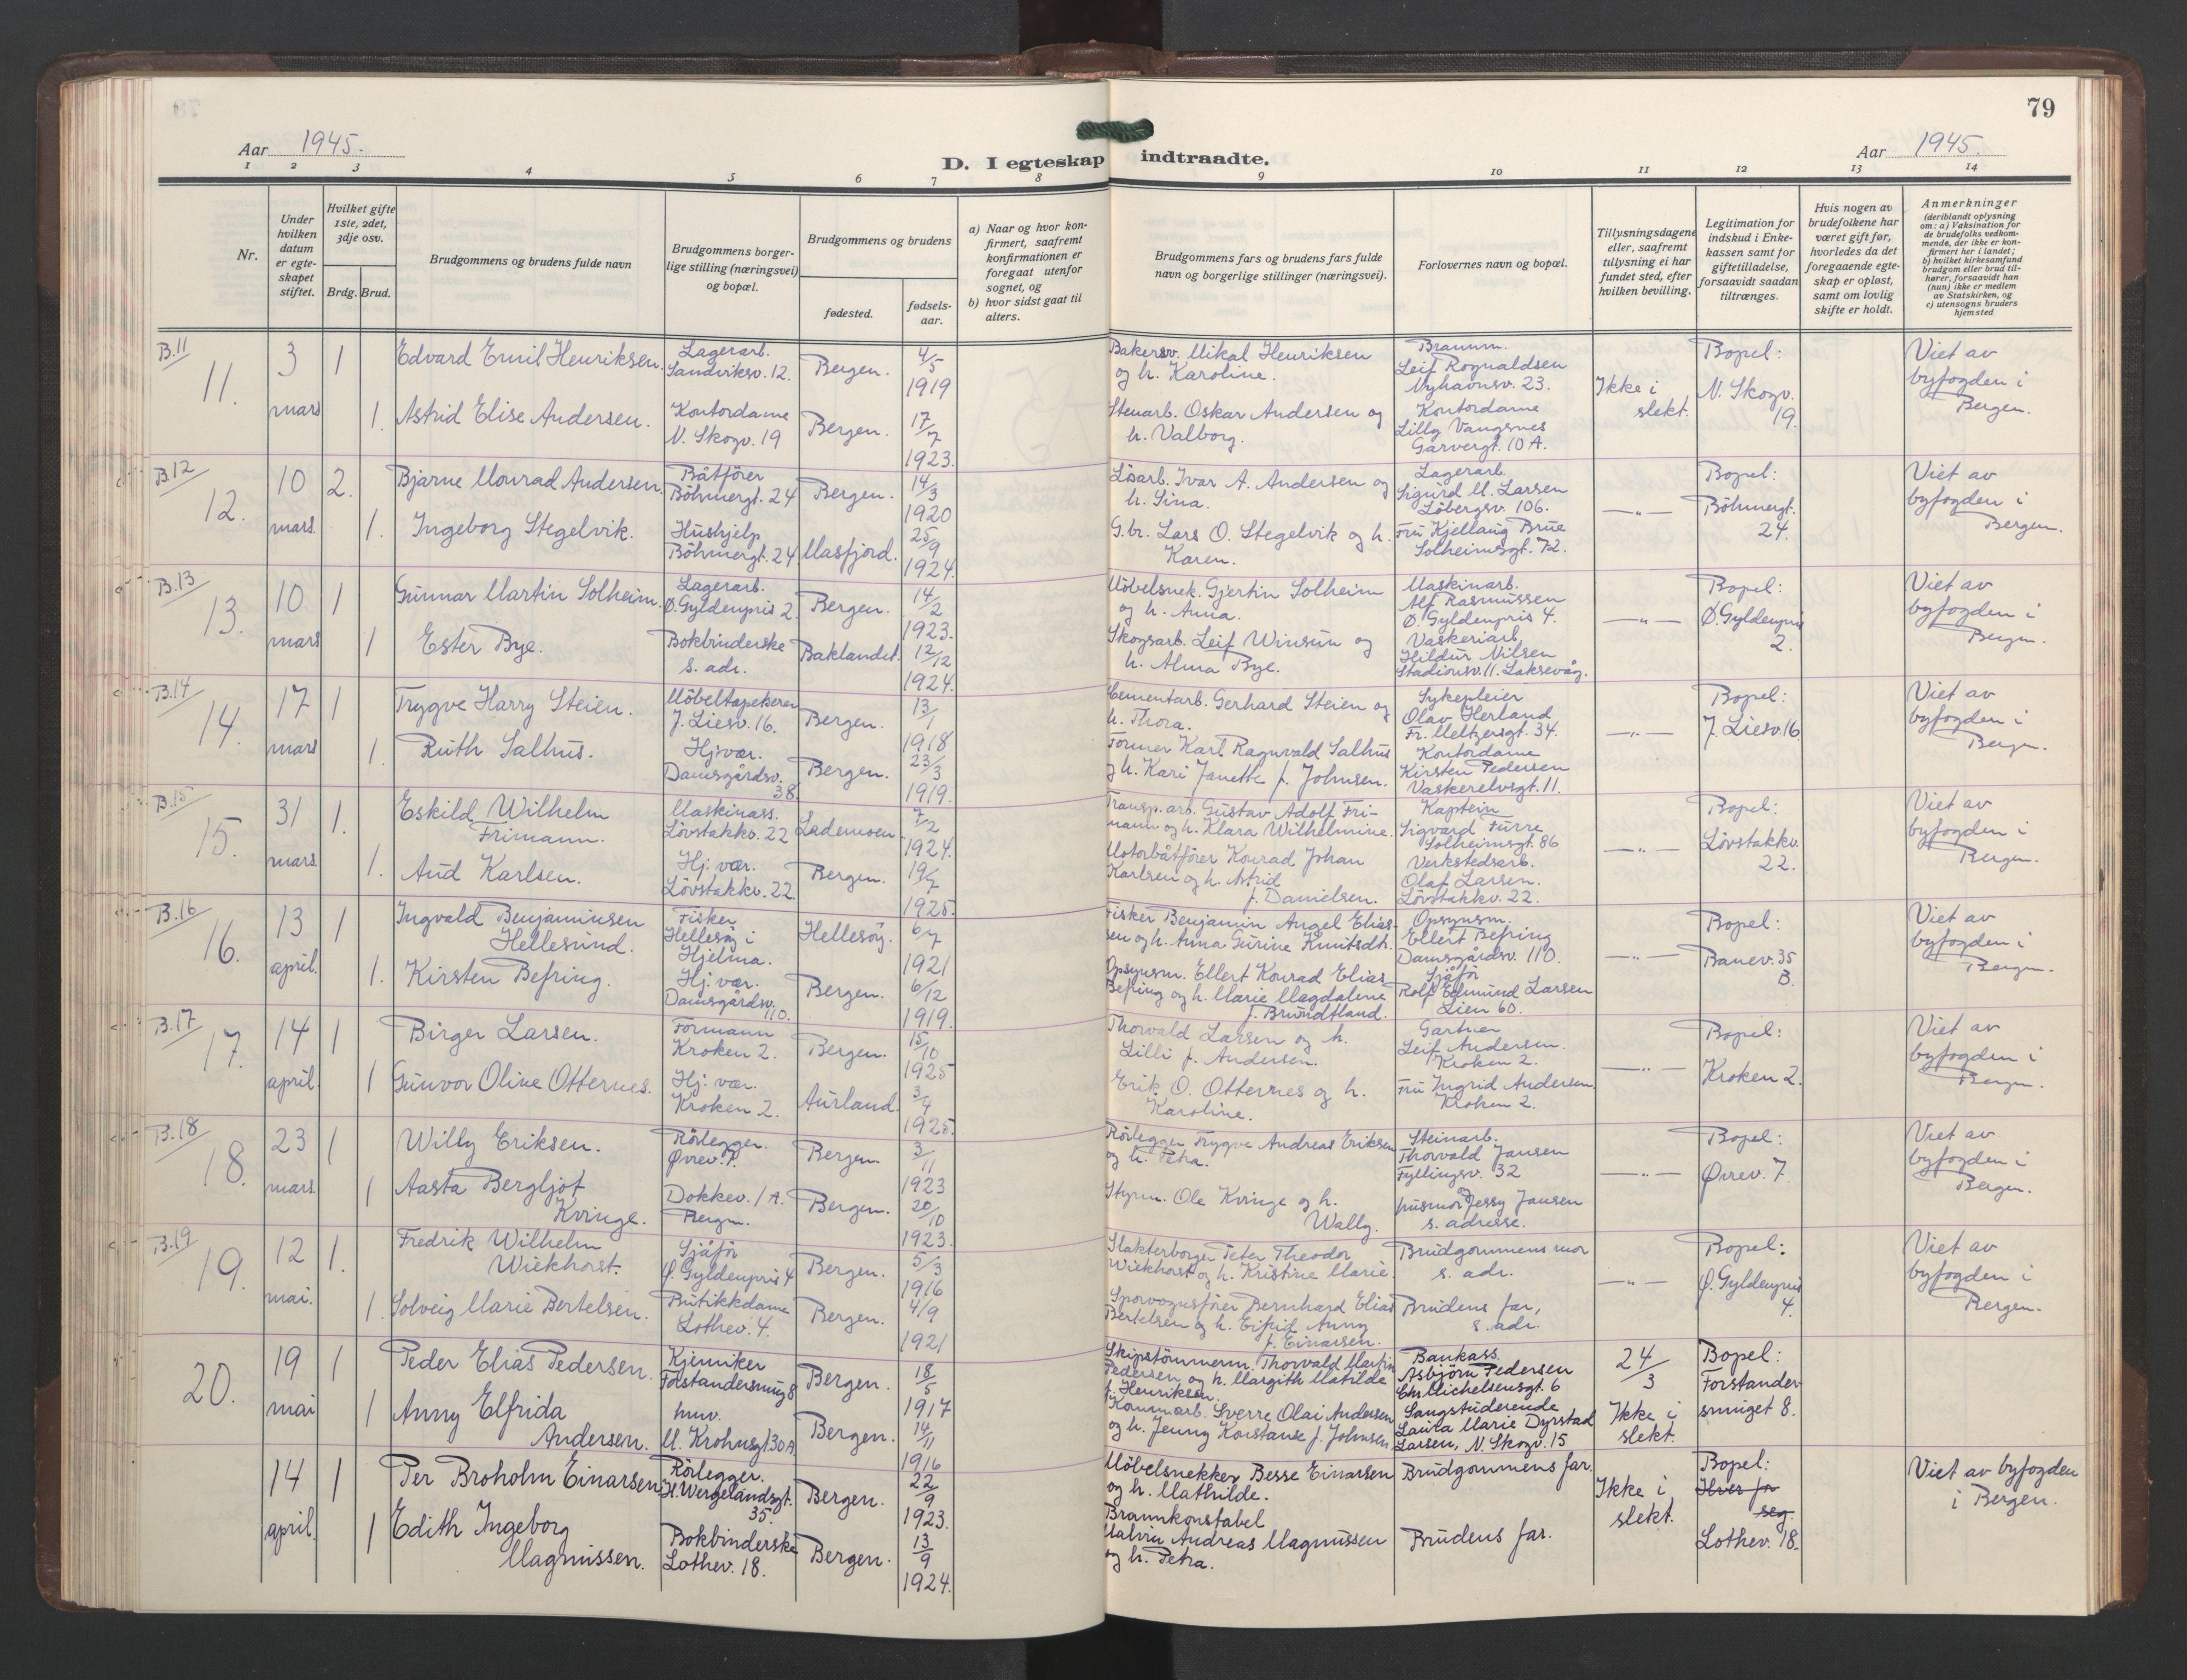 79
Aar 1945.
D. I egteskap indtraadte.
Aar 1945.
1 2 3 4 5 6 7 8 9 10 11 12 13 14
Nr.
Under hvilken datum er egte-skapet stiftet.
Hvilket gifte 1ste, 2det, 3dje osv.
Brdg. Brud.
Brudgommens og brudens fulde navn
Brudgommens borger-lige stilling (næringsvei) og bopæl.
Brudgommens og brudens
fødested.
fødsels-aar.
a) Naar og hvor kon-firmert, saafremt konfirmationen er foregaat utenfor sognet, og
b) hvor sidst gaat til alters.
Brudgommens fars og brudens fars fulde navn og borgerlige stillinger (næringsvei).
Forlovernes navn og bopæl.
Tillysningsdagene eller, saafremt tillysning ei har fundet sted, efter hvilken bevilling.
Legitimation for indskud i Enke-kassen samt for giftetilladelse, forsaavidt saadan tiltrænges.
Hvis nogen av brudefolkene har været gift før, hvorledes da det foregaaende egte-skap er opløst, samt om lovlig skifte er holdt.
Anmerkninger
(deriblandt oplysning om: a) Vaksination for de brudefolks vedkom-mende, der ikke er kon-firmert her i landet; b) hvilket kirkesamfund brudgom eller brud til-hører, forsaavidt han (hun) ikke er medlem av Statskirken, og c) utensogns bruders hjemsted
B.11
11.
3 mars
1
Edvard Emil Henriksen.
Lagerarb.
Sandviksv. 12.
Bergen.
4/5 1919
Bakersv. Mikal Henriksen
og h. Karoline.
Brannm.
Leif Rognaldsen
Nyhavnsv. 23.
Ikke i
slekt.
Bopel:
N. Skogv.
19.
Viet av
byfogden i
Bergen.
1. Astrid Elise Andersen.
Kontordame
N. Skogv. 19
Bergen.
17/7 1923.
Stenarb. Oskar Andersen og
h. Valborg.
Kontordame
Lilly Vangsnes
Garvergt. 10 A.
B.12
12.
10 mars
2.
Bjarne Monrad Andersen.
Båtfører
Böhmergt. 24
Bergen.
14/3 1920
Lösarb. Ivar A. Andersen og
h. Sina.
Lagerarb.
Sigurd M. Larsen
Löbergsv. 106.
—"—
Bopel:
Böhmergt.
24.
Viet av
byfogden i
Bergen.
1. Ingeborg Stegelvik.
Hushjelp
Böhmergt. 24
Masfjord.
25/9 1924.
G.br. Lars O. Stegelvik og h.
Karen.
Fru Kjellaug Brue
Solheimsgt. 72.
B.13
13.
10 mars
1
Gunnar Martin Solheim.
Lagerarb.
Ø. Gyldenpris 2.
Bergen.
14/2 1923.
Möbelsnek. Gjertin Solheim
og h. Anna.
Maskinarb.
Alf Rasmussen
Ø. Gyldenpris 4.
—"—
Bopel:
Ø. Gyldenpris
2.
Viet av
byfogden i
Bergen.
1 Ester Bye.
Bokbinderske
s. adr.
Baklandet.
12/12 1924.
Skogsarb. Leif Winsun og
h. Alma Bye.
Vaskeriarb.
Hildur Nilsen
Stadionsv. 11. Laksevåg.
B.14
14.
17 mars
1
Trygve Harry Steien.
Möbeltapetserer
J. Liesv. 16.
Bergen.
13/1 1918
Cementarb. Gerhard Steien og
h. Thora.
Sykepleier
Olav Herland
Fr. Meltzersgt. 34.
—"—
Bopel:
J. Liesv. 16.
Viet av
byfogden i
Bergen.
1. Ruth Salhus.
Hj. vær.
Damsgårdsv.
38.
Bergen.
23/3 1919.
Former Karl Ragnvald Salhus
og h. Kari Janette f. Johnsen.
Kontordame
Kirsten Pedersen
Vaskerelvsgt. 11.
B.15
15.
31 mars
1.
Eskild Wilhelm
Frimann.
Maskinass.
Lövstakkv. 22
Lademoen
7/2 1924.
Transp. arb. Gustav Adolf Fri-
mann og h. Klara Wilhelmine.
Kaptein
Sigvard Furre
Solheimsgt. 86
—"—
Bopel:
Lövstakkv.
22.
Viet av
byfogden i
Bergen.
1. Aud Karlsen.
Hj. vær.
Lövstakkv. 22.
Bergen.
19/7 1925.
Motorbåtfører Konrad Johan
Karlsen og h. Astrid
f. Danielsen.
Verkstedsarb.
Olaf Larsen.
Lövstakkv. 22.
B.16
16.
13 april.
1
Ingvald Benjaminsen
Hellesund.
Fisker
Hellesöy i
Hjelma.
Hellesöy.
6/7 1921
Fisker Benjamin Angel Elias-
sen og h. Anna Gurine Knutsdt.
Opsynsm.
Ellert Befring
Damsgårdsv. 110.
—"—
Bopel:
Banev. 35
B.
Viet av
byfogden i
Bergen.
1. Kirsten Befring.
Hj. vær.
Damsgårdsv.
110.
Bergen.
6/12 1919.
Opsynsm. Ellert Konrad Elias
Befring og h. Marie Magdalene
f. Brundtland.
Sjåför
Rolf Edmund Larsen
Lien 60.
B.17
17.
14 april.
1
Birger Larsen.
Formann
Kroken 2.
Bergen.
15/10 1925
Thorvald Larsen og h.
Lilli f. Andersen.
Gartner
Leif Andersen.
Kroken 2.
—"—
Bopel:
Kroken 2.
Viet av
byfogden i
Bergen.
1 Gunvor Oline Otternes.
Hj. vær.
Kroken 2.
Aurland.
3/4 1925.
Erik O. Otternes og h.
Karoline.
Fru Ingrid Andersen.
Kroken 2.
B.18
18.
23 mars
1
Willy Eriksen.
Rörlegger.
Øvrev. 7.
Bergen
3/11 1923
Rörlegger Trygve Andreas Eriksen
og h. Petra.
Steinarb.
Thorvald Jansen
Fyllingsv. 32
—"—
Bopel:
Øvrev. 7.
Viet av
byfogden i
Bergen.
1 Aasta Bergljot
Kvinge.
Dokkev. 1 A.
Bergen.
Bergen.
20/10 1923.
Styrm. Ole Kvinge og h.
Wally.
og
husmor Jessy Jansen
s. adresse.
B.19
19.
12 mai.
1.
Fredrik Wilhelm
Wiekhorst.
Sjåför
Ø. Gyldenpris 4
Bergen.
5/3 1916
Slakterborger Peter Theodor
Wiekhorst og h. Kristine Marie.
Brudgommens mor
s. adr.
—"—
Bopel:
Ø. Gyldenpris
4.
Viet av
byfogden i
Bergen.
1 Solveig Marie Bertelsen.
Butikkdame
Lothev. 4.
Bergen.
4/9 1921
Sporvognsfører Bernhard Elias
Bertelsen og h. Anny
f. Einarsen.
Brudens far,
s. adr.
20.
19 mai
1
Peder Elias Pedersen.
Kjemiker
Forstandersmug 8
Bergen.
18/5 1917
Skipstömmerm. Thorvald Martin
Pedersen og h. Margith Matilde
f. Henriksen.
Bankass.
Asbjörn Pedersen
Chr. Michelsensgt. 6
24/3
Ikke i
slekt.
Bopel:
Forstander-
smuget 8.
1 Anny Elfrida
Andersen.
huv.
M. Krohnsgt. 30 A
Bergen.
14/11 1916
Kommarb. Sverre Olai Andersen
og h. Jenny Konstanse f. Johnsen
Sangstuderende
Laura Marie Dyrstad
Larsen, N. Skogv. 15
14 april.
1
Per Broholm Einarsen
Rörlegger.
H. Wergelandsgt.
35.
Bergen.
22/9 1923.
Möbelsnekker Besse Einarsen
og h. Mathilde.
Brudgommens far.
Ikke i
slekt.
Bopel:
Hver for
seg.
Lothev. 18.
Viet av byfogden
i Bergen.
1 Edith Ingeborg
Magnussen.
Bokbinderske
Lothev. 18.
Bergen.
13/9 1924.
Brannkonstabel
Malvin Andreas Magnussen
og h. Petra.
Brudens far.